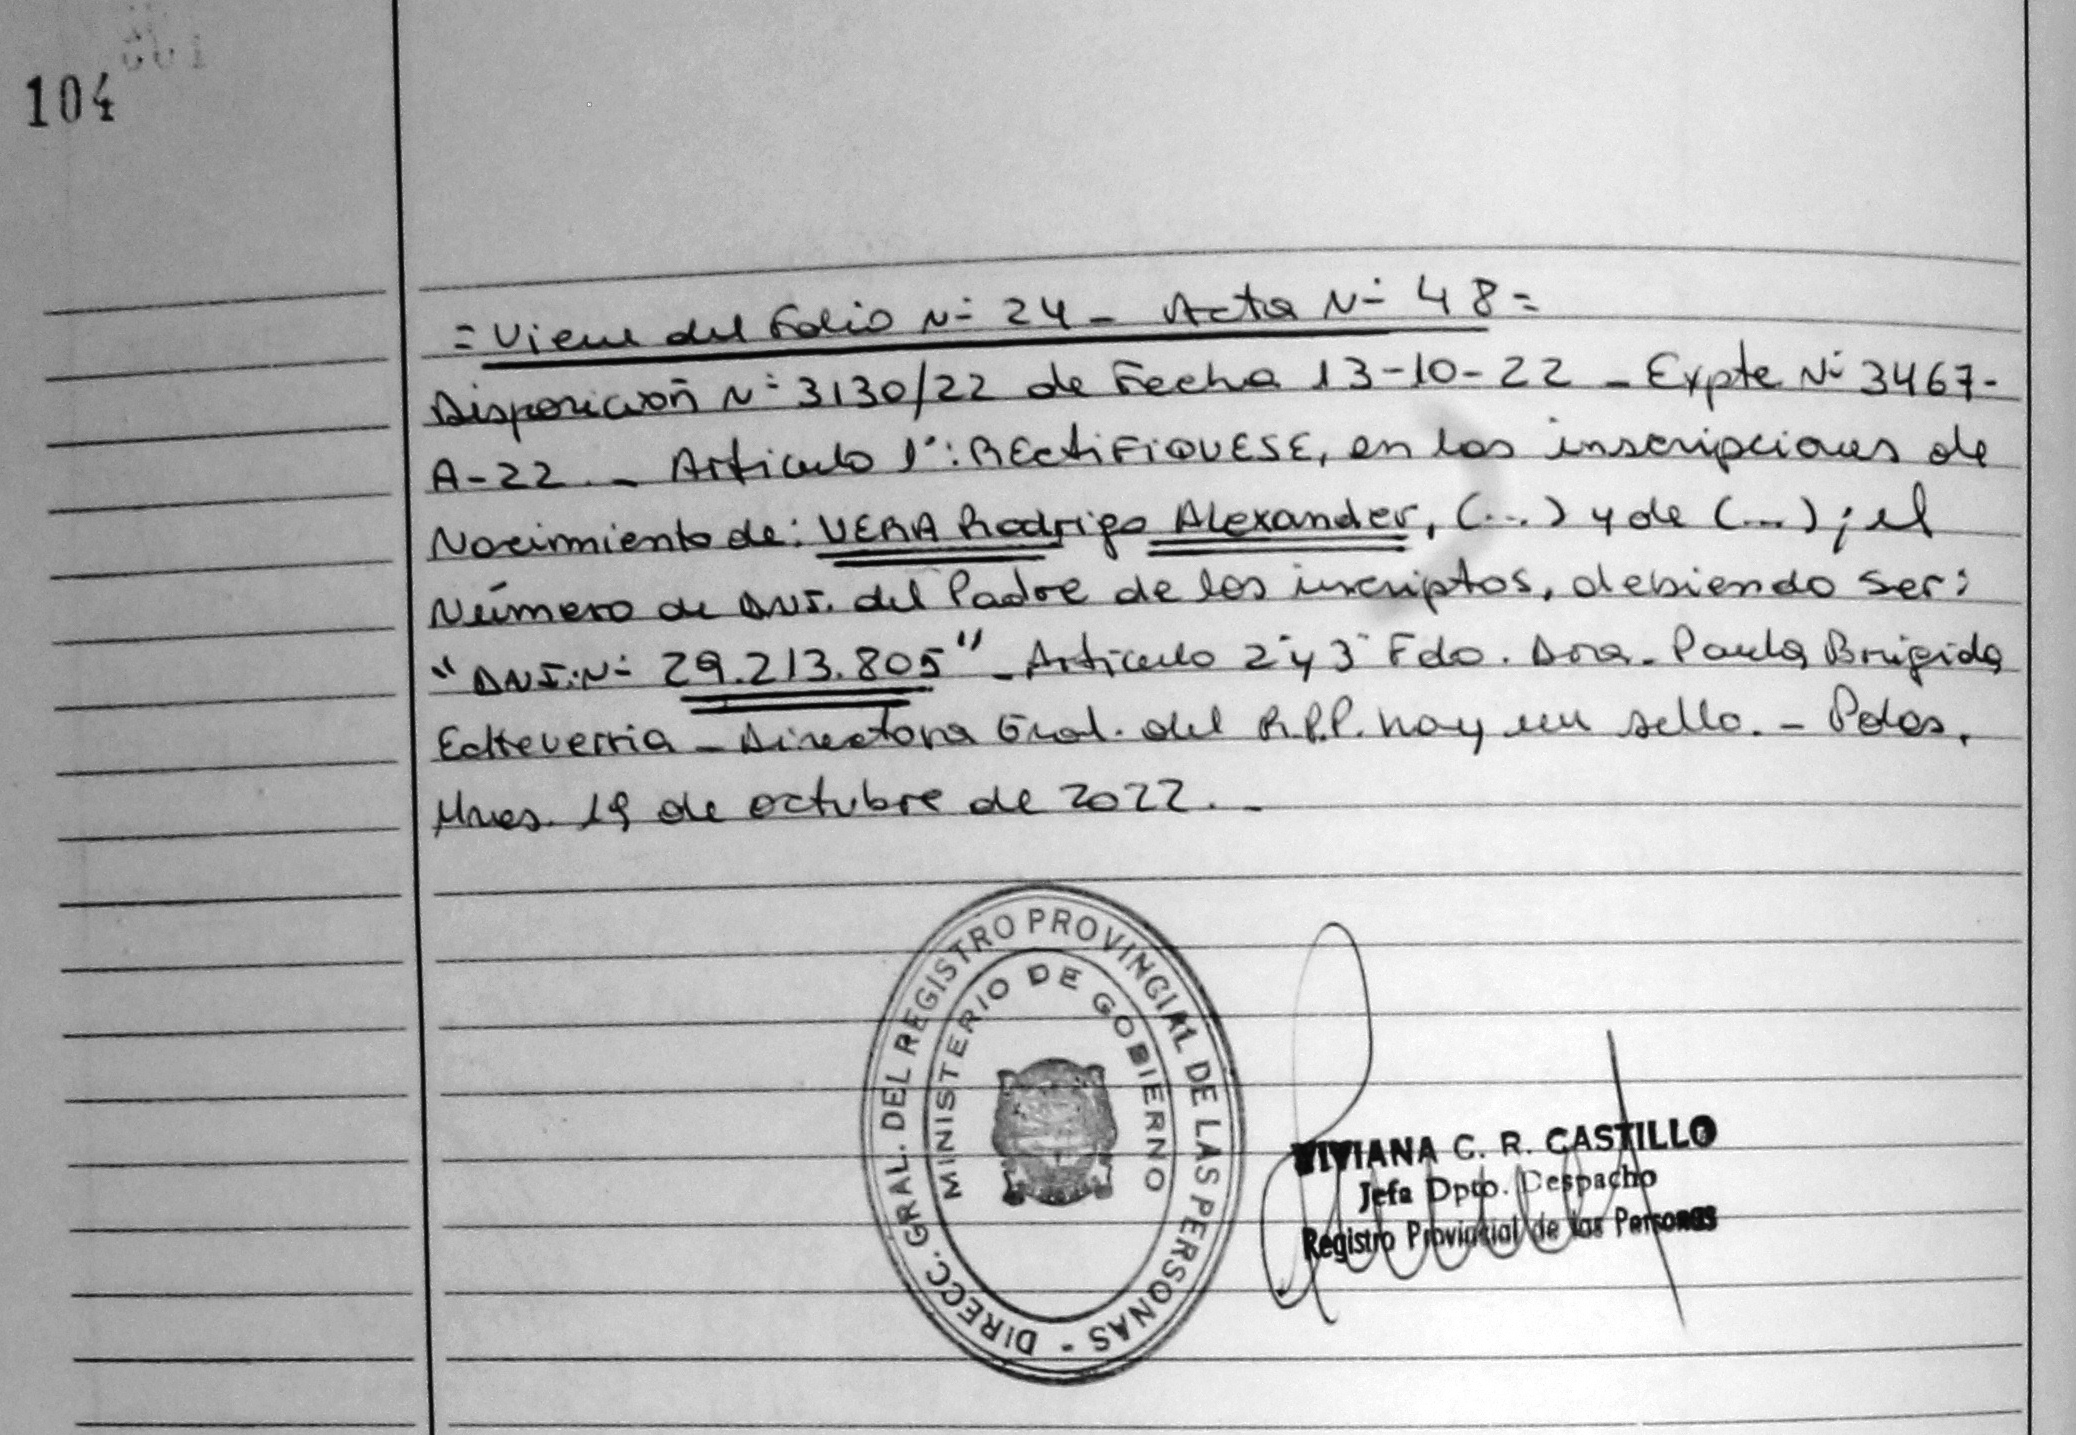 104
= Viene del Folio Nº 24 - Acta Nº 48 =
Disposición Nº 3130/22 de Fecha 13-10-22 - Expte Nº 3467-
A-22.- Articulo 1º: RECtiFiQUESE, en las inscripciones de
Nacimiento de: VERA Rodrigo Alexander, (...) y de (...) ; el
Número de DNI. del Padre de los inscriptos, debiendo ser:
"DNI: Nº 29.213.805" - Articulo 2º y 3º Fdo. Dra. Paula Brigida
Echeverria - Directora Gral. del R.P.P. hay un sello. - Pdas,
Mnes. 19 de octubre de 2022.-
DIRECC. GRAL. DEL REGISTRO PROVINCIAL DE LAS PERSONAS -
MINISTERIO DE GOBIERNO
VIVIANA C. R. CASTILLO
Jefa Dpto. Despacho
Registro Provincial de las Personas